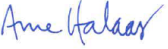 Arne Halaas